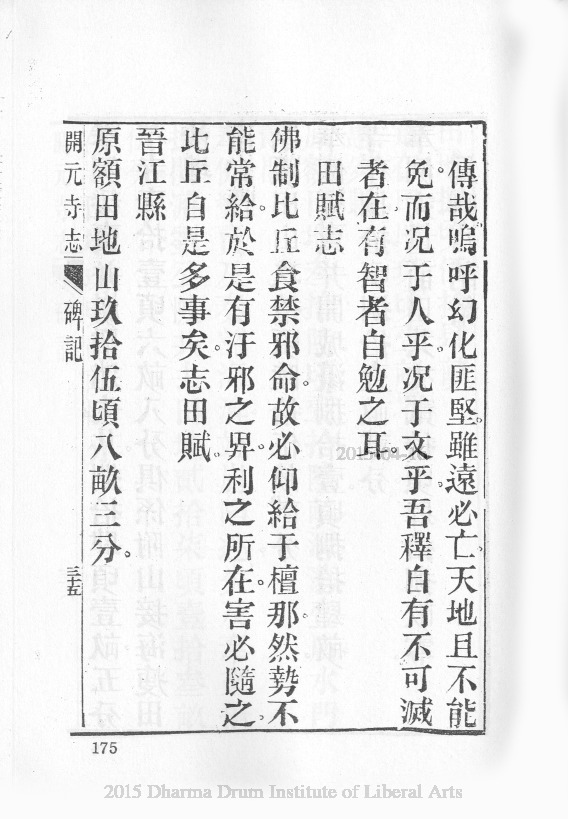 傳哉嗚呼幻化匪堅。雖遠必亡。天地且不能
免。而况于人乎。况于文乎。吾釋自有不可滅
者在。有智者自勉之耳。
田賦志
佛制比丘食禁邪命。故必仰給于檀那。然勢不
能常給。於是有汙邪之畀。利之所在。害必隨之。
比丘自是多事矣。志田賦。
晉江縣
原額田地山玖拾伍頃八畝三分。
開元寺志 碑記 三五
175
2015 Dharma Drum Institute of Liberal Arts